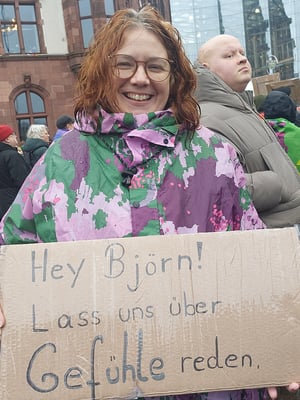 Hey Björn!
Lass uns über
Gefühle reden.